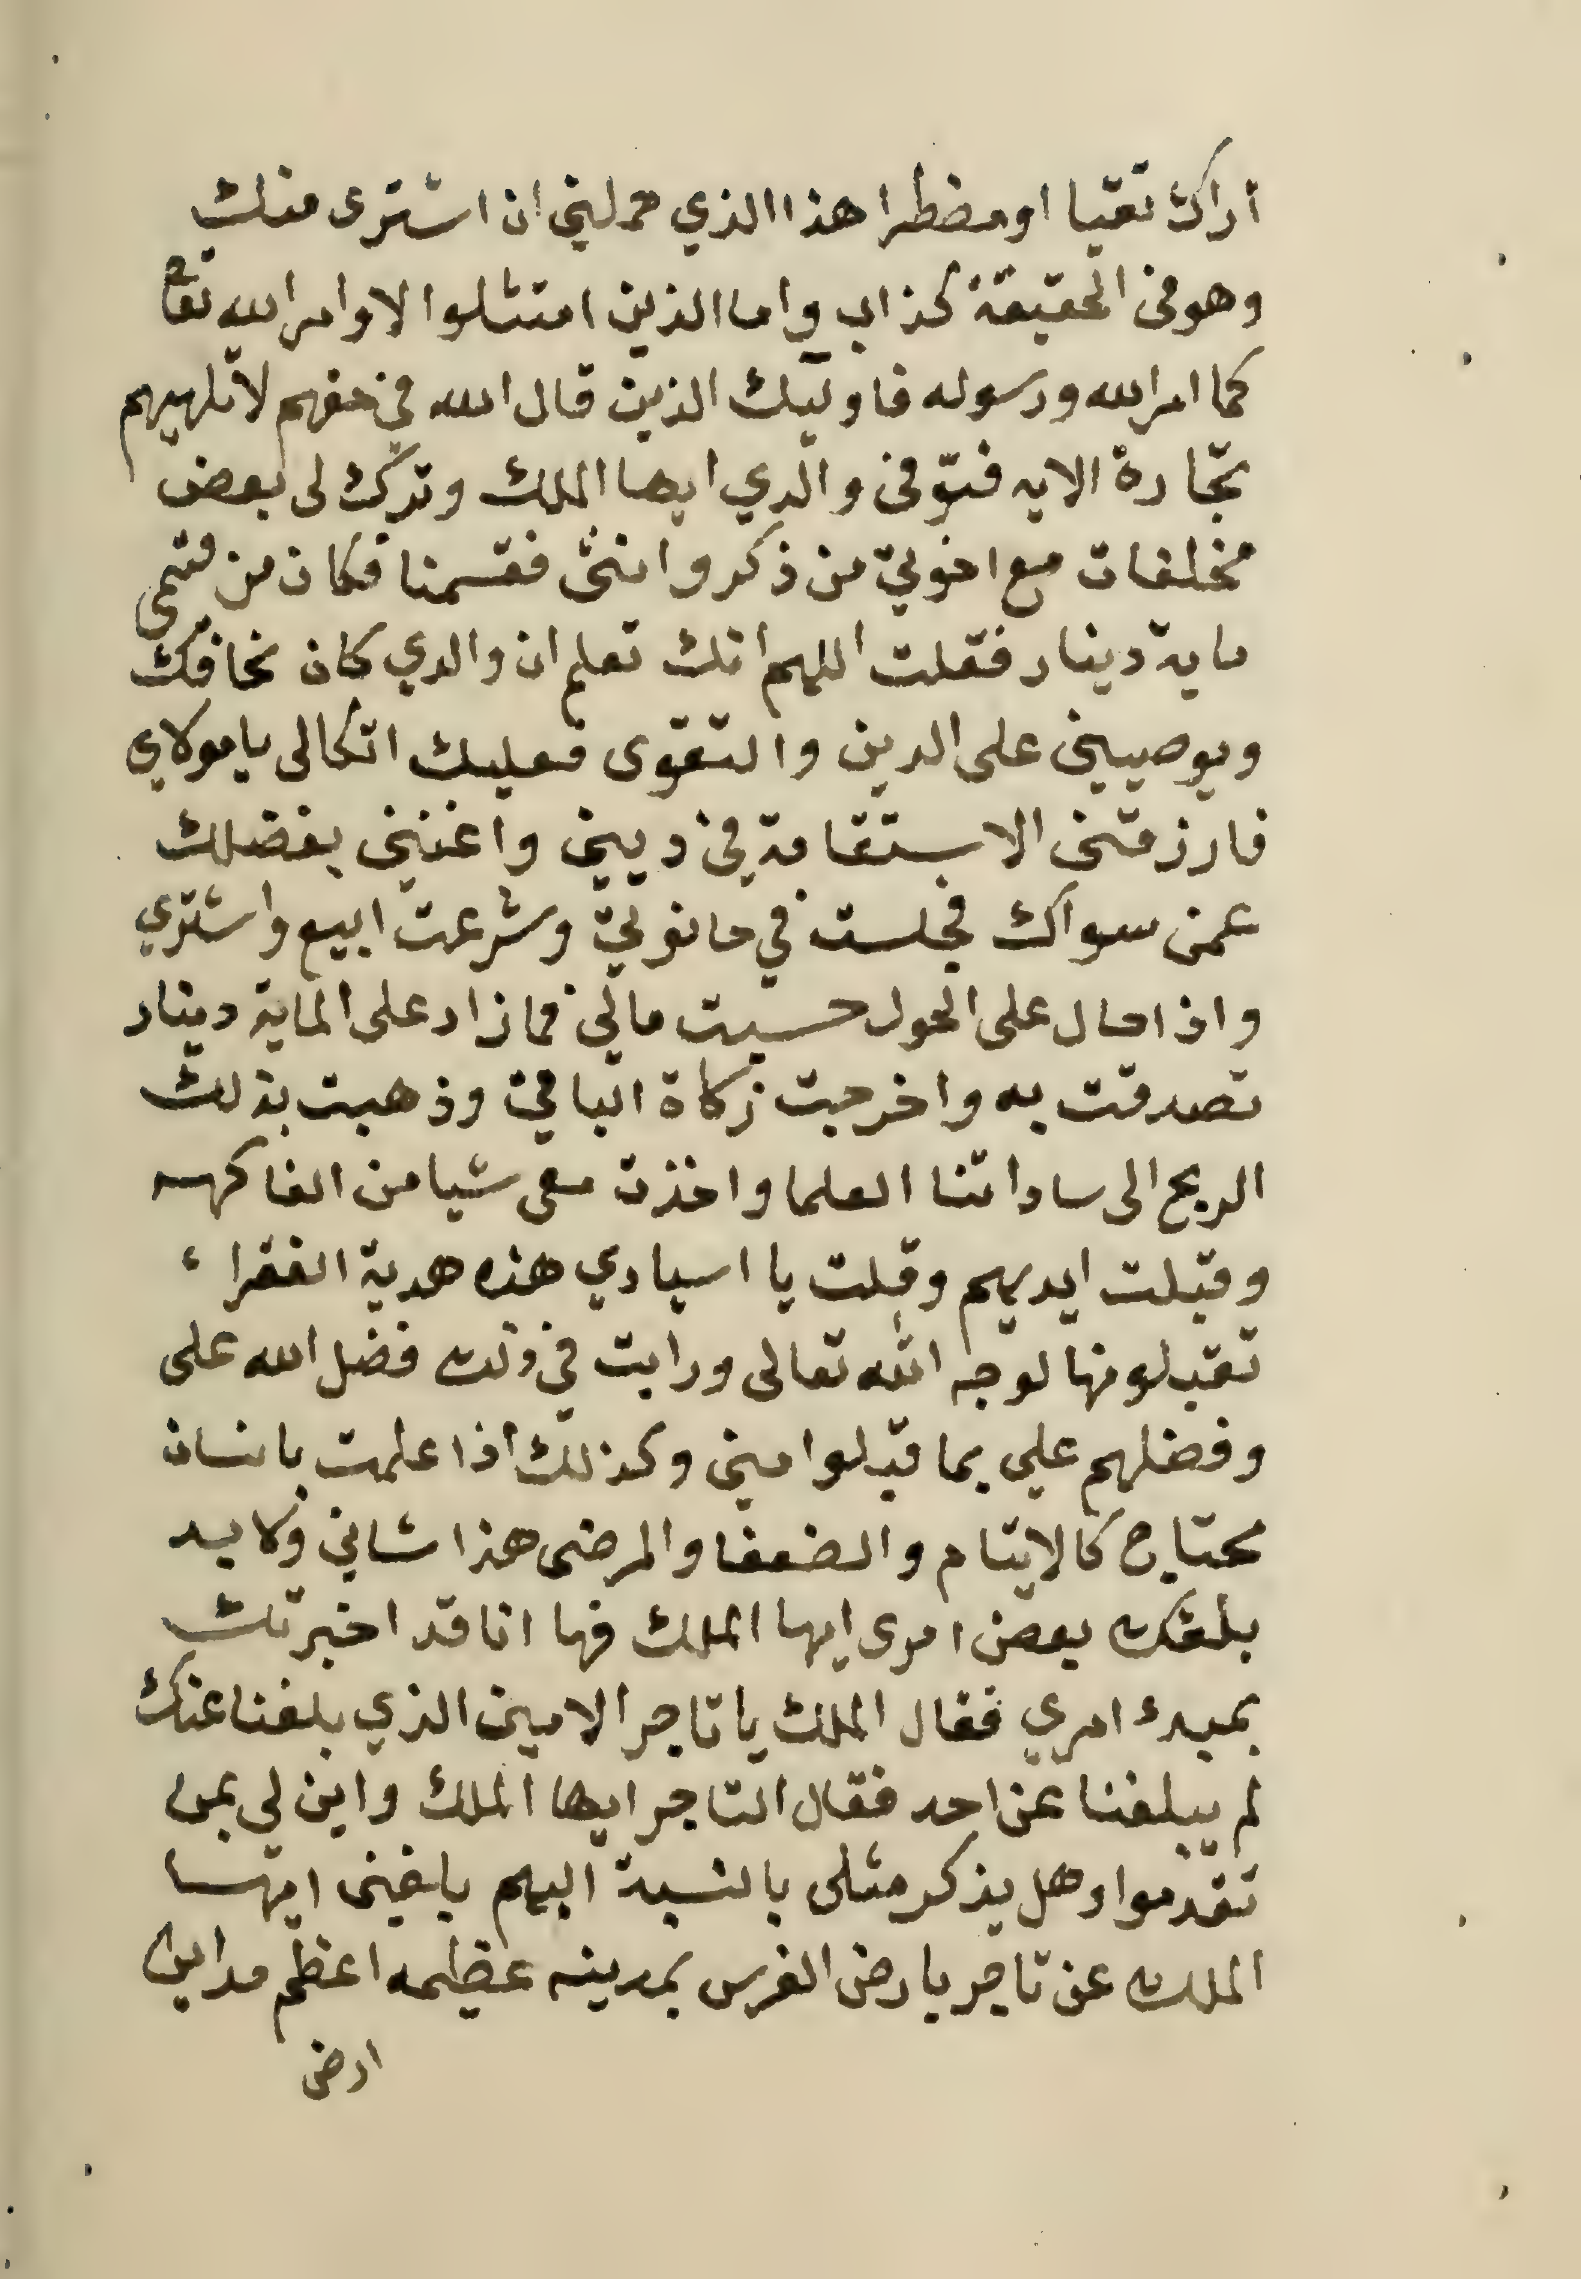 اراك تقيا او مضطرا هذا الذي حملني ان اشترى منك
وهو فى الحقيقة كذاب واما الذين امتثلوا لاوامر الله تعا
كما امر الله ورسوله فاوليك الذين قال الله في حقهم لا تلهيهم
تجارة الايه فتوفى والدي ايها الملك وترك لى بعض
مخلفات مع اخوتي من ذكر وانثى فقسمنا فكان من قسمى
ماية دينار فقلت اللهم انك تعلم ان والدي كان يخافك
ويوصينى على الدين والتقوى فعليك اتكالى يا مولاي
فارزقنى الاستقامة في دينى واغننى بفضلك
عمن سواك فجلست في حانوتي وشرعت ابيع واشتري
واذا حال على الحول حسبت مالي فما زاد على الماية دينار
تصدقت به واخرجت زكاة الباقي وذهبت بذلك
الربح الى ساداتنا العلما واخذت معى شيا من الفاكهه
وقبلت ايديهم وقلت يا اسيادي هذه هدية الفقراء
تقبلونها لوجه الله تعالى ورايت في ذلك فضل الله على
وفضلهم علي بما قبلوا منى وكذلك اذا علمت بانسان
محتاج كالايتام والضعفا والمرضى هذا شاني ولا بد
بلغك بعض امرى ايها الملك فها انا قد اخبرتك
بمبدء امري فقال الملك يا تاجر الامين الذي بلغنا عنك
لم يبلغنا عن احد فقال التاجر ايها الملك واين لي بمن
تقدموا وهل يذكر مثلى بالنسبة اليهم بلغنى ايها
الملك عن تاجر بارض الفرس بمدينه عظيمه اعظم مداين
ارض